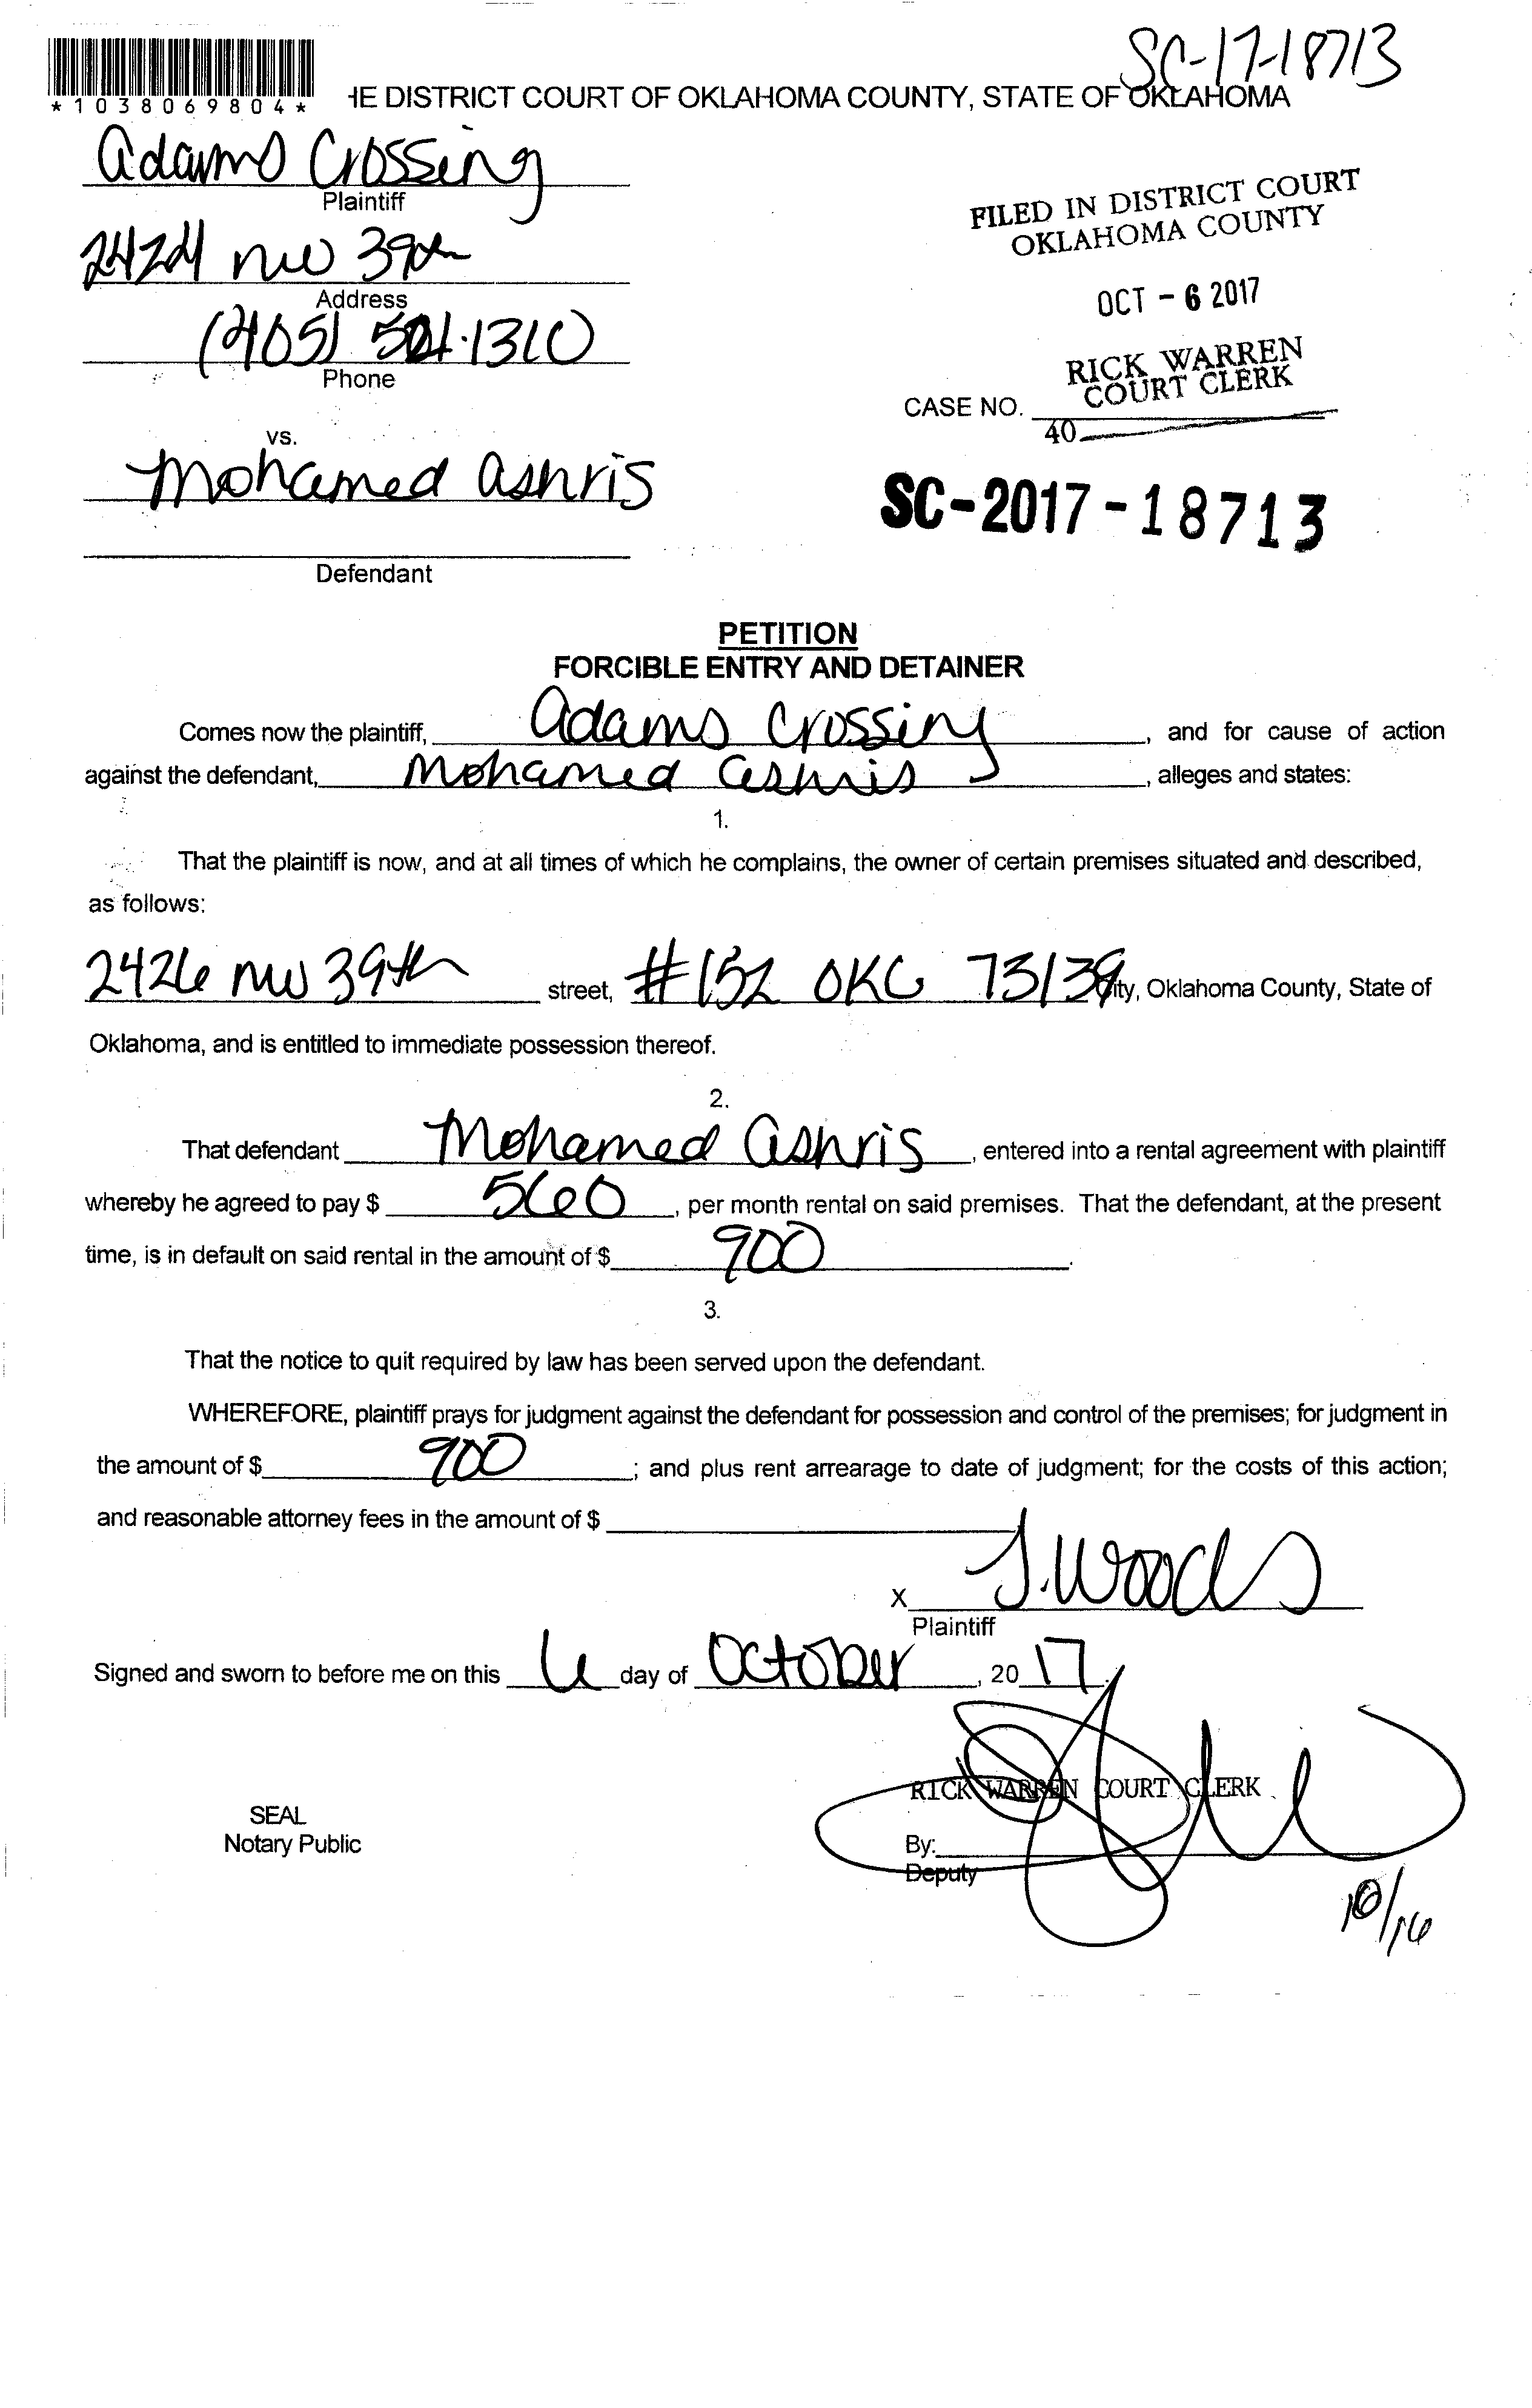 SC-17-18713
*1038069804*
HE DISTRICT COURT OF OKLAHOMA COUNTY, STATE OF OKLAHOMA
Adams Crossing
Plaintiff
FILED IN DISTRICT COURT
OKLAHOMA COUNTY
2424 NW 39th
Address
OCT - 6 2017
(405) 521-1310
Phone
RICK WARREN
COURT CLERK
CASE NO.
40
vs.
Mohamed Ashris
SC-2017-18713
Defendant
PETITION
FORCIBLE ENTRY AND DETAINER
Comes now the plaintiff, Adams Crossing, and for cause of action
against the defendant, Mohamed Ashris, alleges and states:
1.
That the plaintiff is now, and at all times of which he complains, the owner of certain premises situated and described,
as follows:
2426 NW 39th street, #152 OKC 73139 City, Oklahoma County, State of
Oklahoma, and is entitled to immediate possession thereof.
2.
That defendant Mohamed Ashris, entered into a rental agreement with plaintiff
whereby he agreed to pay $ 560, per month rental on said premises. That the defendant, at the present
time, is in default on said rental in the amount of $ 900.
3.
That the notice to quit required by law has been served upon the defendant.
WHEREFORE, plaintiff prays for judgment against the defendant for possession and control of the premises; for judgment in
the amount of $ 900; and plus rent arrearage to date of judgment; for the costs of this action;
and reasonable attorney fees in the amount of $
X J. Woods
Plaintiff
Signed and sworn to before me on this 6 day of October, 2017.
RICK WARREN COURT CLERK
SEAL
Notary Public
By:
Deputy
10/16